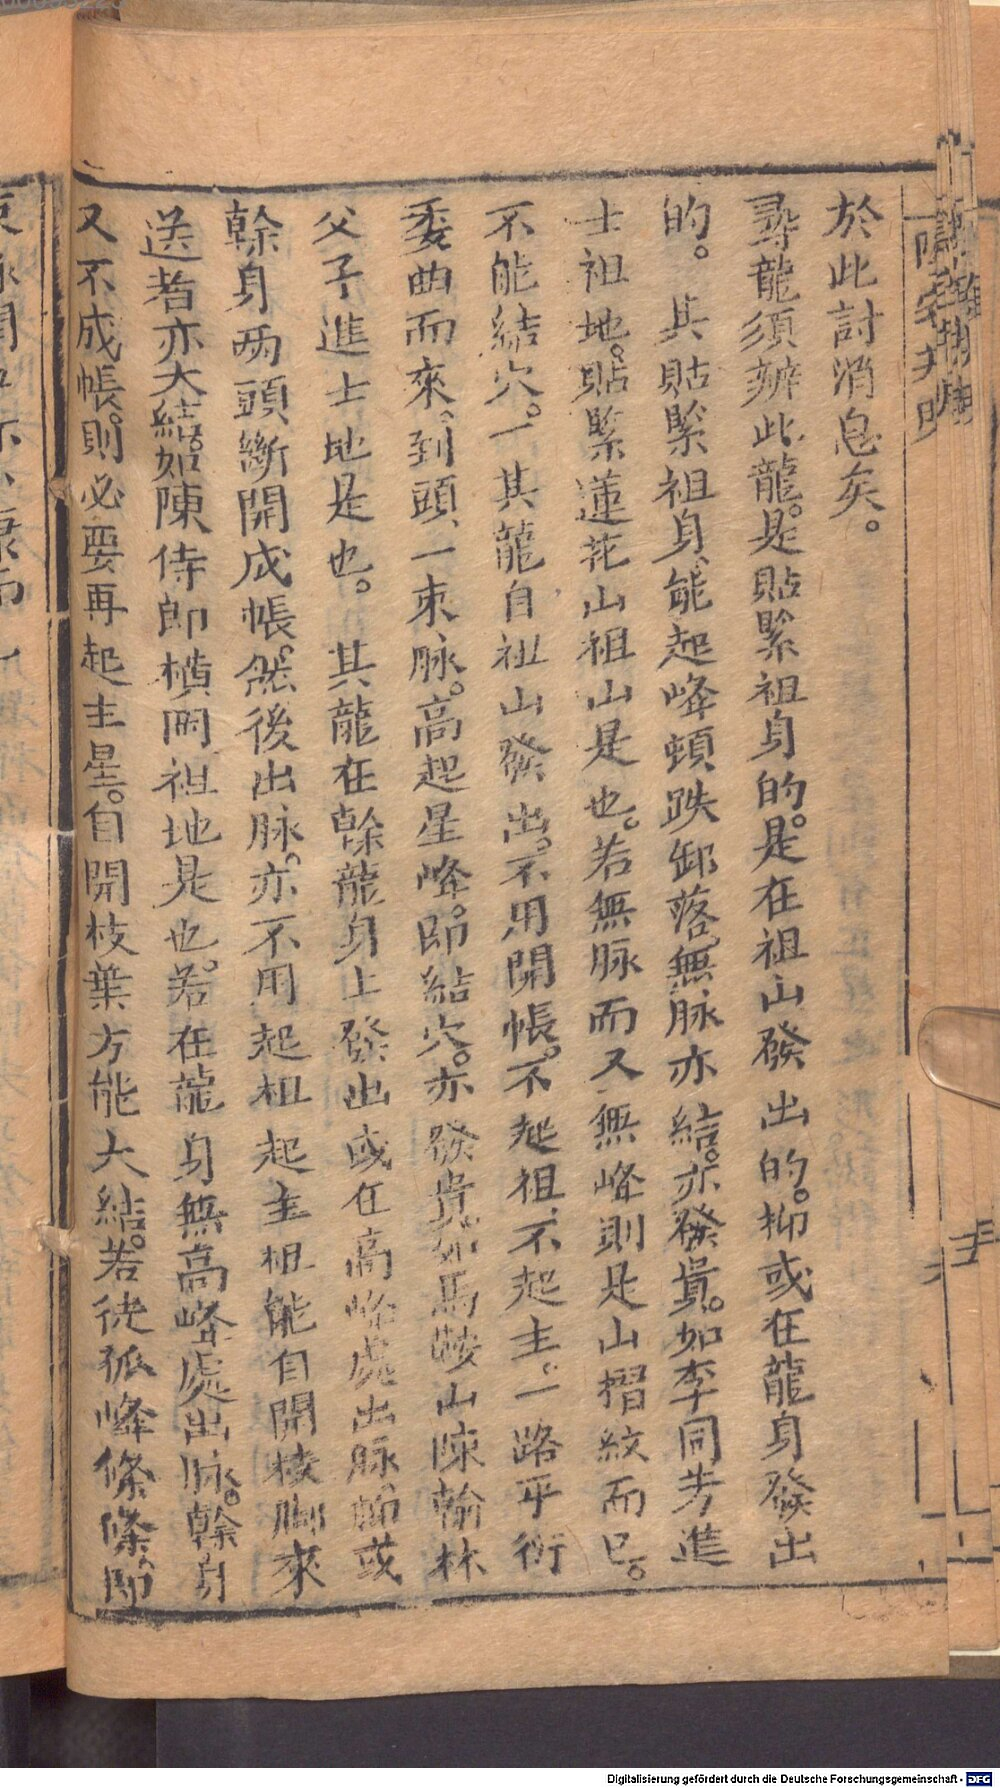 於此討消息矣。
尋龍須辨此龍。是貼緊祖身的。是在祖山發出的。抑或在龍身發出
的。其貼緊祖身、能起峰頓跌卸落、無脉亦結。亦發貴。如李同芳進
士祖地。貼緊蓮花山祖山是也。若無脉而又無峰則是山摺紋而已。
不能結穴。一其龍自祖山發出。不用開帳。不起祖、不起主。一路平衍
委曲而來、到頭一束脉。高起星峰。即結穴。亦發貴。如馬鞍山陳翰林
父子進士地是也。其龍在幹龍身上發出或在高峰處出脉、節或
幹身两頭斷開成帳。然後出脉。亦不用起祖起主祖能自開枝脚來
送者亦大結。如陳侍郎橫岡祖地是也。若在龍身無高峰處出脉。幹身
又不成帳。則必要再起主星。自開枝葉方能大結。若徒孤峰條條、即